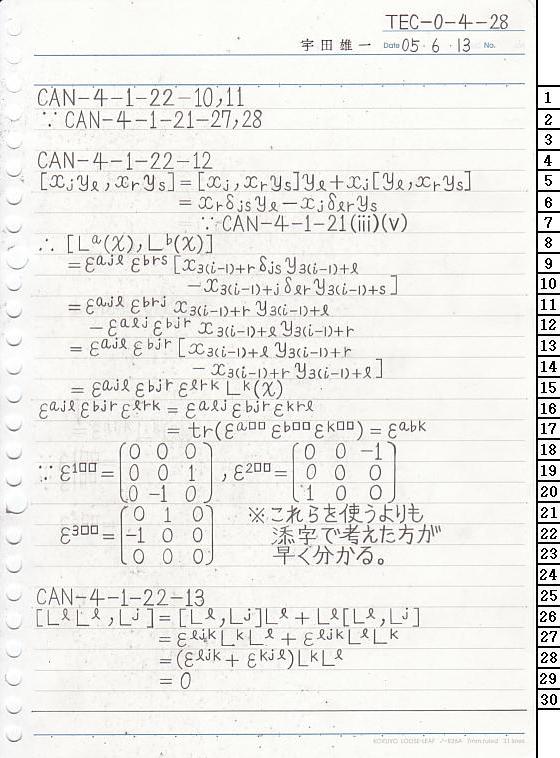 TEC-0-4-28
宇田雄一 Date 05・6・13 No.
CAN-4-1-22-10,11
∵ CAN-4-1-21-27,28
CAN-4-1-22-12
[xⱼyₗ, xᵣyₛ] = [xⱼ, xᵣyₛ]yₗ + xⱼ[yₗ, xᵣyₛ]
= xᵣδⱼₛyₗ - xⱼδₗᵣyₛ
∵ CAN-4-1-21(iii)(v)
∴ [Lᵃ(χ), Lᵇ(χ)]
= εᵃʲˡ εᵇʳˢ [x₃₍ᵢ₋₁₎₊ᵣ δⱼₛ y₃₍ᵢ₋₁₎₊ₗ
- x₃₍ᵢ₋₁₎₊ⱼ δₗᵣ y₃₍ᵢ₋₁₎₊ₛ]
= εᵃʲˡ εᵇʳʲ x₃₍ᵢ₋₁₎₊ᵣ y₃₍ᵢ₋₁₎₊ₗ
- εᵃˡʲ εᵇʲʳ x₃₍ᵢ₋₁₎₊ₗ y₃₍ᵢ₋₁₎₊ᵣ
= εᵃʲˡ εᵇʲʳ [x₃₍ᵢ₋₁₎₊ₗ y₃₍ᵢ₋₁₎₊ᵣ
- x₃₍ᵢ₋₁₎₊ᵣ y₃₍ᵢ₋₁₎₊ₗ]
= εᵃʲˡ εᵇʲʳ εˡʳᵏ Lᵏ(χ)
εᵃʲˡ εᵇʲʳ εˡʳᵏ = εᵃˡʲ εᵇʲʳ εᵏʳˡ
= tr(εᵃ□□ εᵇ□□ εᵏ□□) = εᵃᵇᵏ
∵ ε¹□□ = (0 0 0 / 0 0 1 / 0 -1 0), ε²□□ = (0 0 -1 / 0 0 0 / 1 0 0)
ε³□□ = (0 1 0 / -1 0 0 / 0 0 0)
※これらを使うよりも
添字で考えた方が
早く分かる。
CAN-4-1-22-13
[LˡLˡ, Lʲ] = [Lˡ, Lʲ]Lˡ + Lˡ[Lˡ, Lʲ]
= εˡʲᵏLᵏLˡ + εˡʲᵏLˡLᵏ
= (εˡʲᵏ + εᵏʲˡ)LᵏLˡ
= 0
KOKUYO LOOSE-LEAF ノ-826A 7mm ruled 31 lines
1
2
3
4
5
6
7
8
9
10
11
12
13
14
15
16
17
18
19
20
21
22
23
24
25
26
27
28
29
30